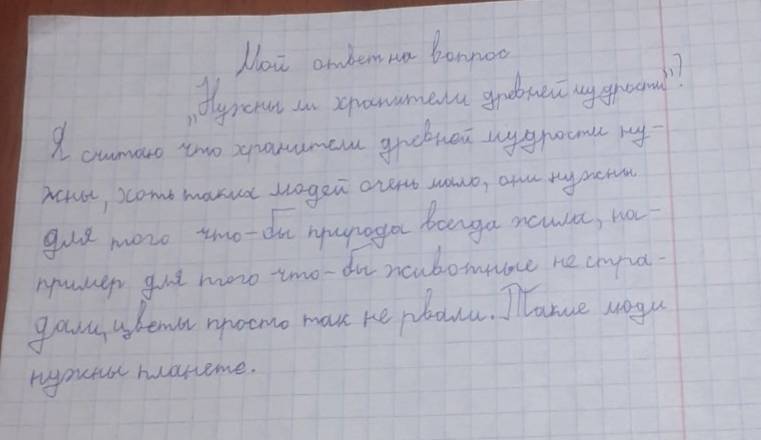 Мой ответ на вопрос
„Нужны ли хранители древней мудрости"?
Я считаю что хранители древной мудрости ну-
жны, хоть таких людей очень мало, они нужны
для того что-бы природа всегда жила, на-
пример для того что-бы животные не стра-
дали, цветы просто так не рвали. Такие люди
нужны планете.